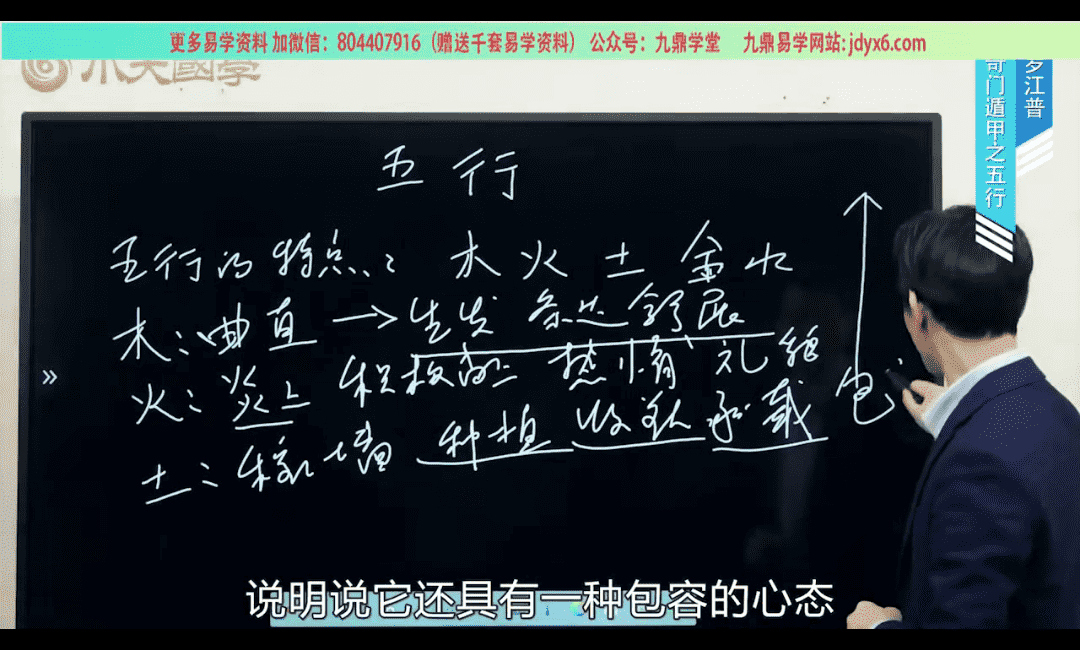 更多易学资料 加微信：804407916（赠送千套易学资料） 公众号：九鼎学堂 九鼎易学网站:jdyx6.com
國学
罗江普
奇门遁甲之五行
五行
五行的特点：木火土金水
木：曲直→生发 条达舒展
火：炎上 积极向上 热情 礼貌
土：稼墙 种植 收敛 承载 包
»
说明说它还具有一种包容的心态